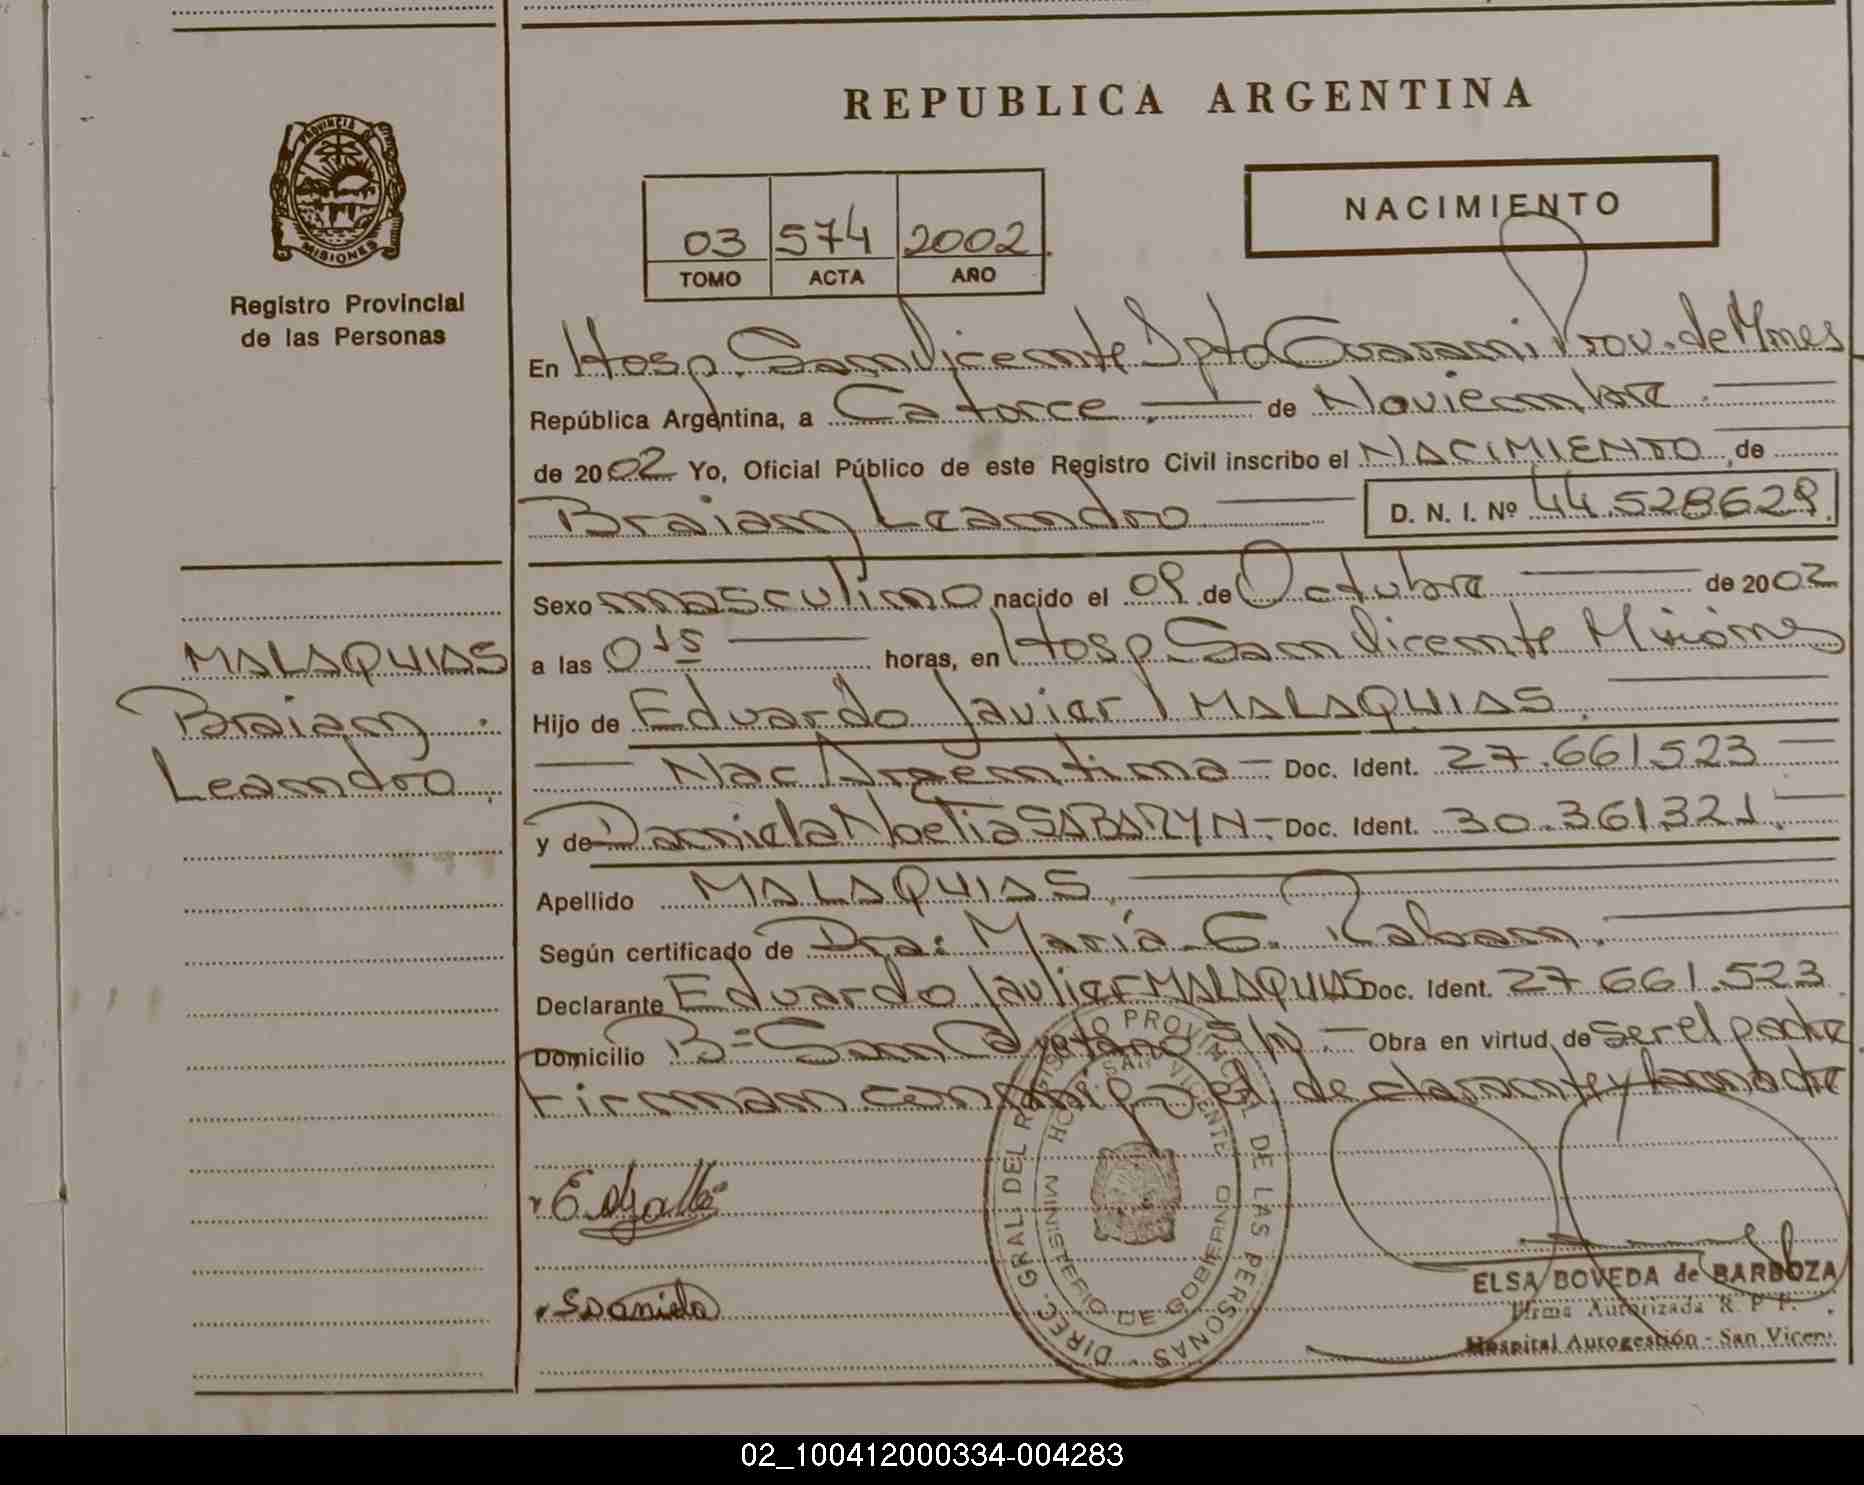 REPUBLICA ARGENTINA
PROVINCIA DE
MISIONES
Registro Provincial
de las Personas
NACIMIENTO
03 574 2002.
TOMO ACTA AÑO
En Hosp. San Vicente Dpto Guarani Prov. de Mnes
República Argentina, a Catorce.— de Noviembre
de 2002 Yo, Oficial Público de este Registro Civil inscribo el NACIMIENTO, de
Braian Leandro D. N. I. Nº 44.528629.
Sexo masculino nacido el 09 de Octubre de 2002
a las 0 15 horas, en Hosp San Vicente Misiones
MALAQUIAS
Braian
Leandro.
Hijo de Eduardo Javier MALAQUIAS.
Nac Argentina — Doc. Ident. 27.661523
y de Daniela Noelia SABARYN — Doc. Ident. 30.361321.
Apellido MALAQUIAS.
Según certificado de Dra: María G.
Declarante Eduardo Javier MALAQUIAS Doc. Ident. 27 661.523
Domicilio Bº San Cayetano S/N.— Obra en virtud de ser el padre
Firman conmigo el declarante y la madre
DIREC. GRAL. DEL REGISTRO PROVINCIAL DE LAS PERSONAS
HOSP. SAN VICENTE
MINISTERIO DE GOBIERNO
SDaniela
ELSA BOVEDA de BARBOZA
Firma Autorizada R. P. P.
Hospital Autogestión - San Vicen.
02_100412000334-004283